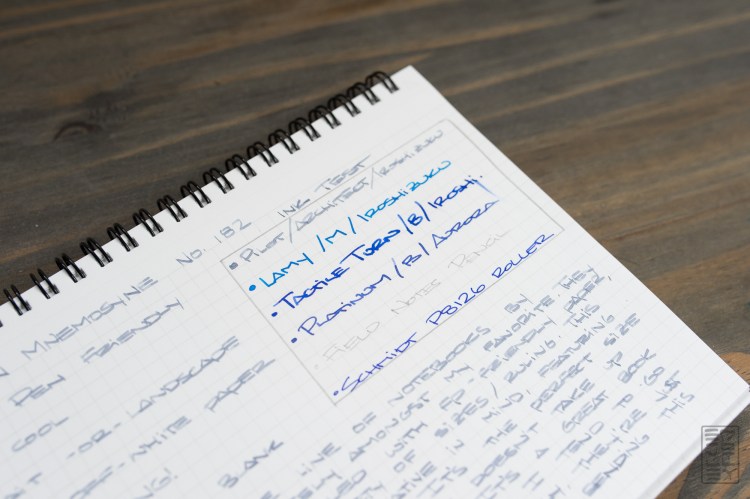 N MNEMOSYNE NO. 182 INK TEST
• PILOT/ARCHITECT/IROSHIZUKU
• LAMY/M/IROSHIZUKU
• TACTILE TURN/B/IROSHI.
• PLATINUM/B/AURORA
• FIELD NOTES PENCIL
• SCHMIDT P8126 ROLLER
PEN FRIENDLY
COOL
-OR- LANDSCAPE
OFF-WHITE PAPER
BLANK
LINE OF NOTEBOOKS BY
AMONGST MY FAVORITE THEY
WITH FP-FRIENDLY PAPER,
OF SIZES/RULING. THIS
IN MIND, FEATURING
THE PERFECT SIZE
DOESN'T TAKE UP
A GREAT BOOK
I TEND TO GO
THEY'RE JUST
THIS